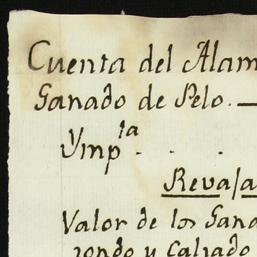 Cuenta del Alam
Ganado de Pelo. —
Ymp.la . . .
Revaja
Valor de los Gana
rondo y Calzado